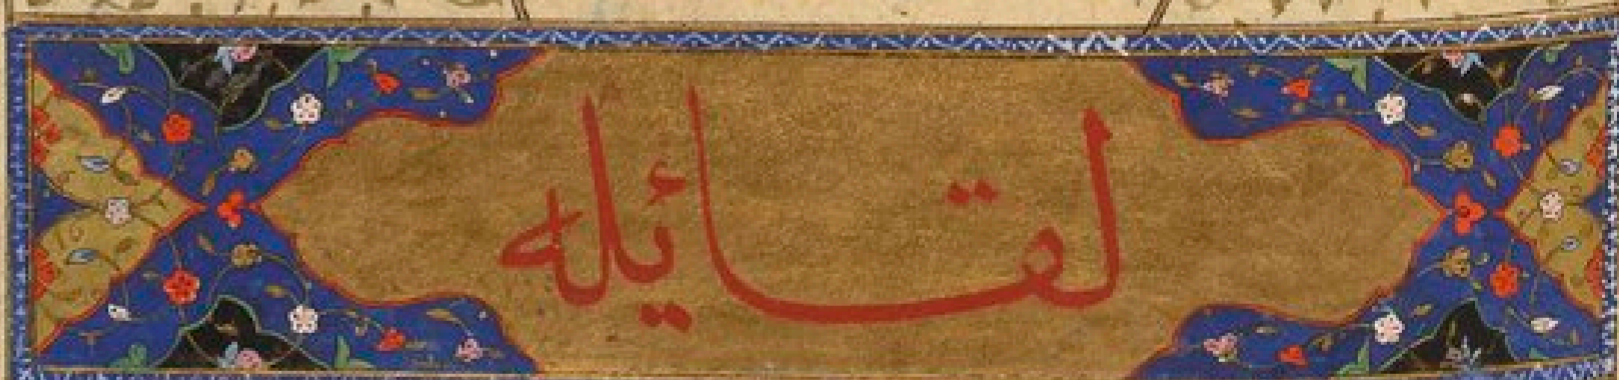 لقائیله